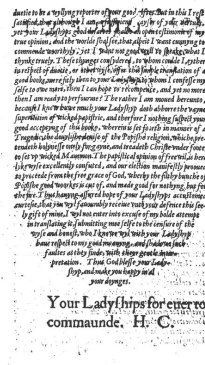 duetie to be a wyllyng reporter of your good
satisfied, that although I am
yet your Ladyships good
true opinion, and the worlde shal see, that, albeit I want cunnyng to
commende woorthely; yet I want not good wyll to
thynke truely. These thynges considered, to whom coulde I eyther
in respect of duetie, or other wyse, offer this simple translation of a
good booke, more fitly then to your Ladiship; to whom I confesse my
selfe to owe more, then I can hope to recompence, and yet no more
then I am ready to performe? The rather I am moued hereunto,
because I know how much your Ladyship doth abhorre the vayne
superstition of wicked papistrie, and therefore I nothing suspect your
good acceptyng of this booke, wherein is set foorth in maner of a
Tragedie the deuyllish deuise of the Popishe religion, which pre-
tendeth holynesse onely for gayne, and treadeth Christe vnder foote
to set vp wicked Mammon. The papisticall opinion of free wil, is here
lykewyse excellently confuted, and our election manifestly prooued
to proceede from the free grace of God, wherby the filthy bunche of
Popishe good workes is cut of, and made good for nothyng, but for
the fire. Thus hauyng assured hope of your Ladyships accustomed
curtesie, that you wyl fauourably receiue with your defence this see-
ly gift of mine, I wyl not enter into excuse of my bolde attempt
in translating it, submittyng mee selfe to the censure of the
wyse and honest, who I know wyl with your Ladyship
beare respect to my good meanyng, and shadow such
faultes as they finde, with theyr gentle inter-
pretation. Thus God blesse your Lady-
ship, and make you happy in al
your doynges.
Your Ladyships for euer to
commaunde. H. C.